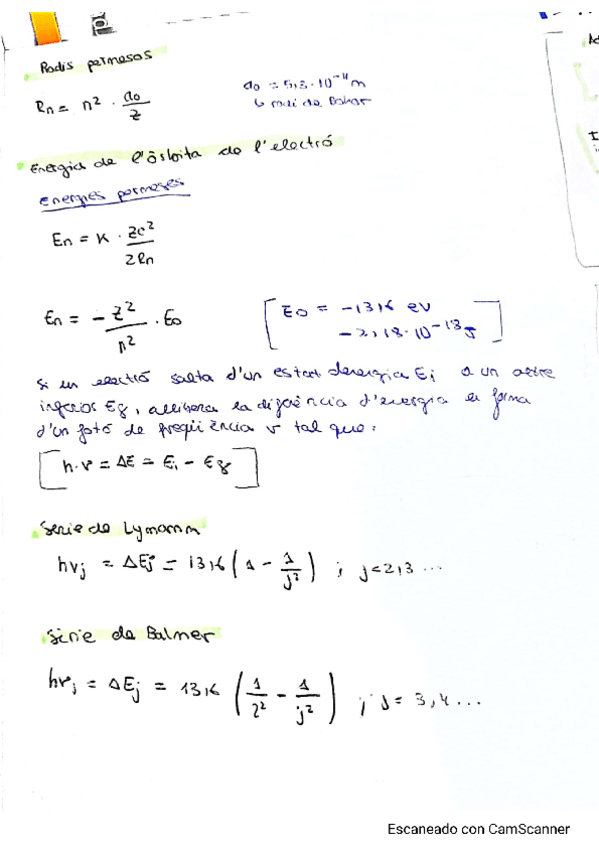 Radis permesos
Rn = n² · a₀/Z
a₀ = 5,3·10⁻¹¹ m
↳ radi de Bohor
Energia de l'òrbita de l'electró
energies permeses
En = K · Ze²/2Rn
En = - Z²/n² · E₀
[E₀ = -13,6 eV
-2,18·10⁻¹⁸ J]
Si un electró salta d'un estat d'energia Ei a un altre
inferior Ef, allibera la diferència d'energia en forma
d'un fotó de freqüència ν tal que:
[h·ν = ΔE = Ei - Ef]
Serie de Lymann
hνj = ΔEj = 13,6 (1 - 1/j²) ; j=2,3 ...
Sèrie de Balmer
hνj = ΔEj = 13,6 (1/2² - 1/j²) ; j= 3,4 ...
Escaneado con CamScanner